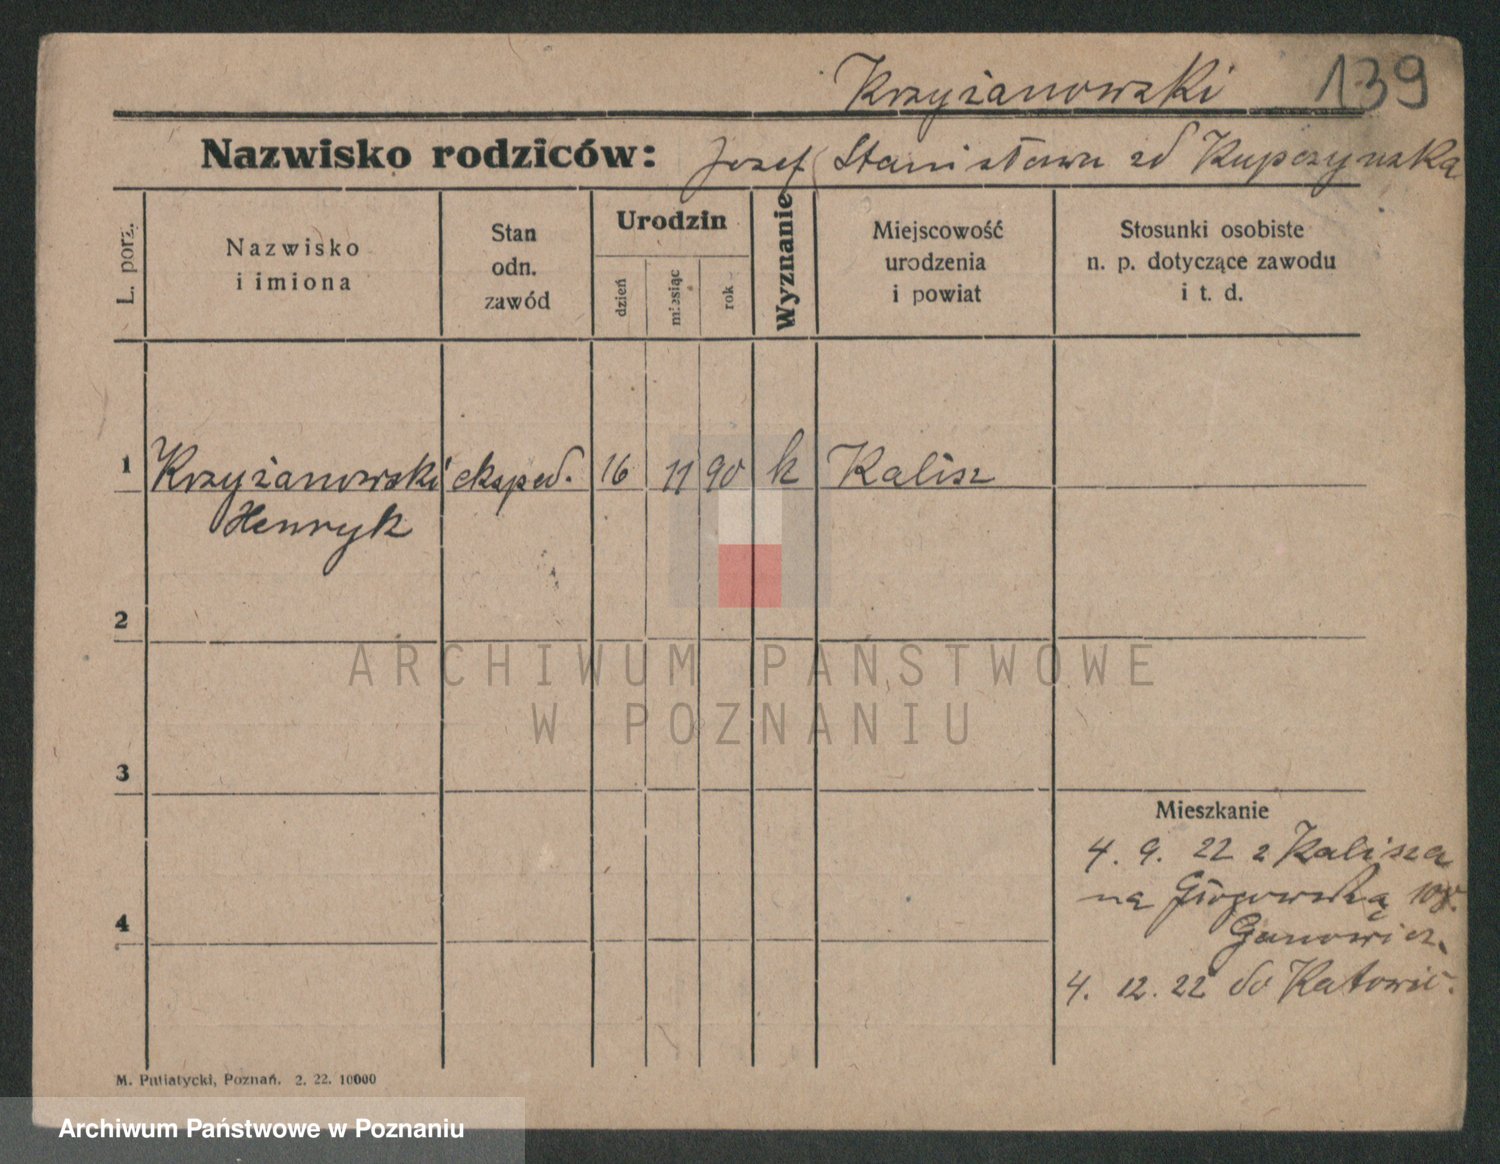 Krzyżanowski 139
Nazwisko rodziców: Jozef Stanisława zd Kupczynska
L. porz.
Nazwisko
i imiona
Stan
odn.
zawód
Urodzin
dzień
miesiąc
rok
Wyznanie
Miejscowość
urodzenia
i powiat
Stosunki osobiste
n. p. dotyczące zawodu
i t. d.
1 Krzyżanowski eksped. 16 11 90 k Kalisz
Henryk
2
3
Mieszkanie
4. 9. 22 z Kalisza
na Głogowską
4
4. 12. 22 do Katowic.
M. Putiatycki, Poznań. 2. 22. 10000
ARCHIWUM PAŃSTWOWE
W POZNANIU
Archiwum Państwowe w Poznaniu